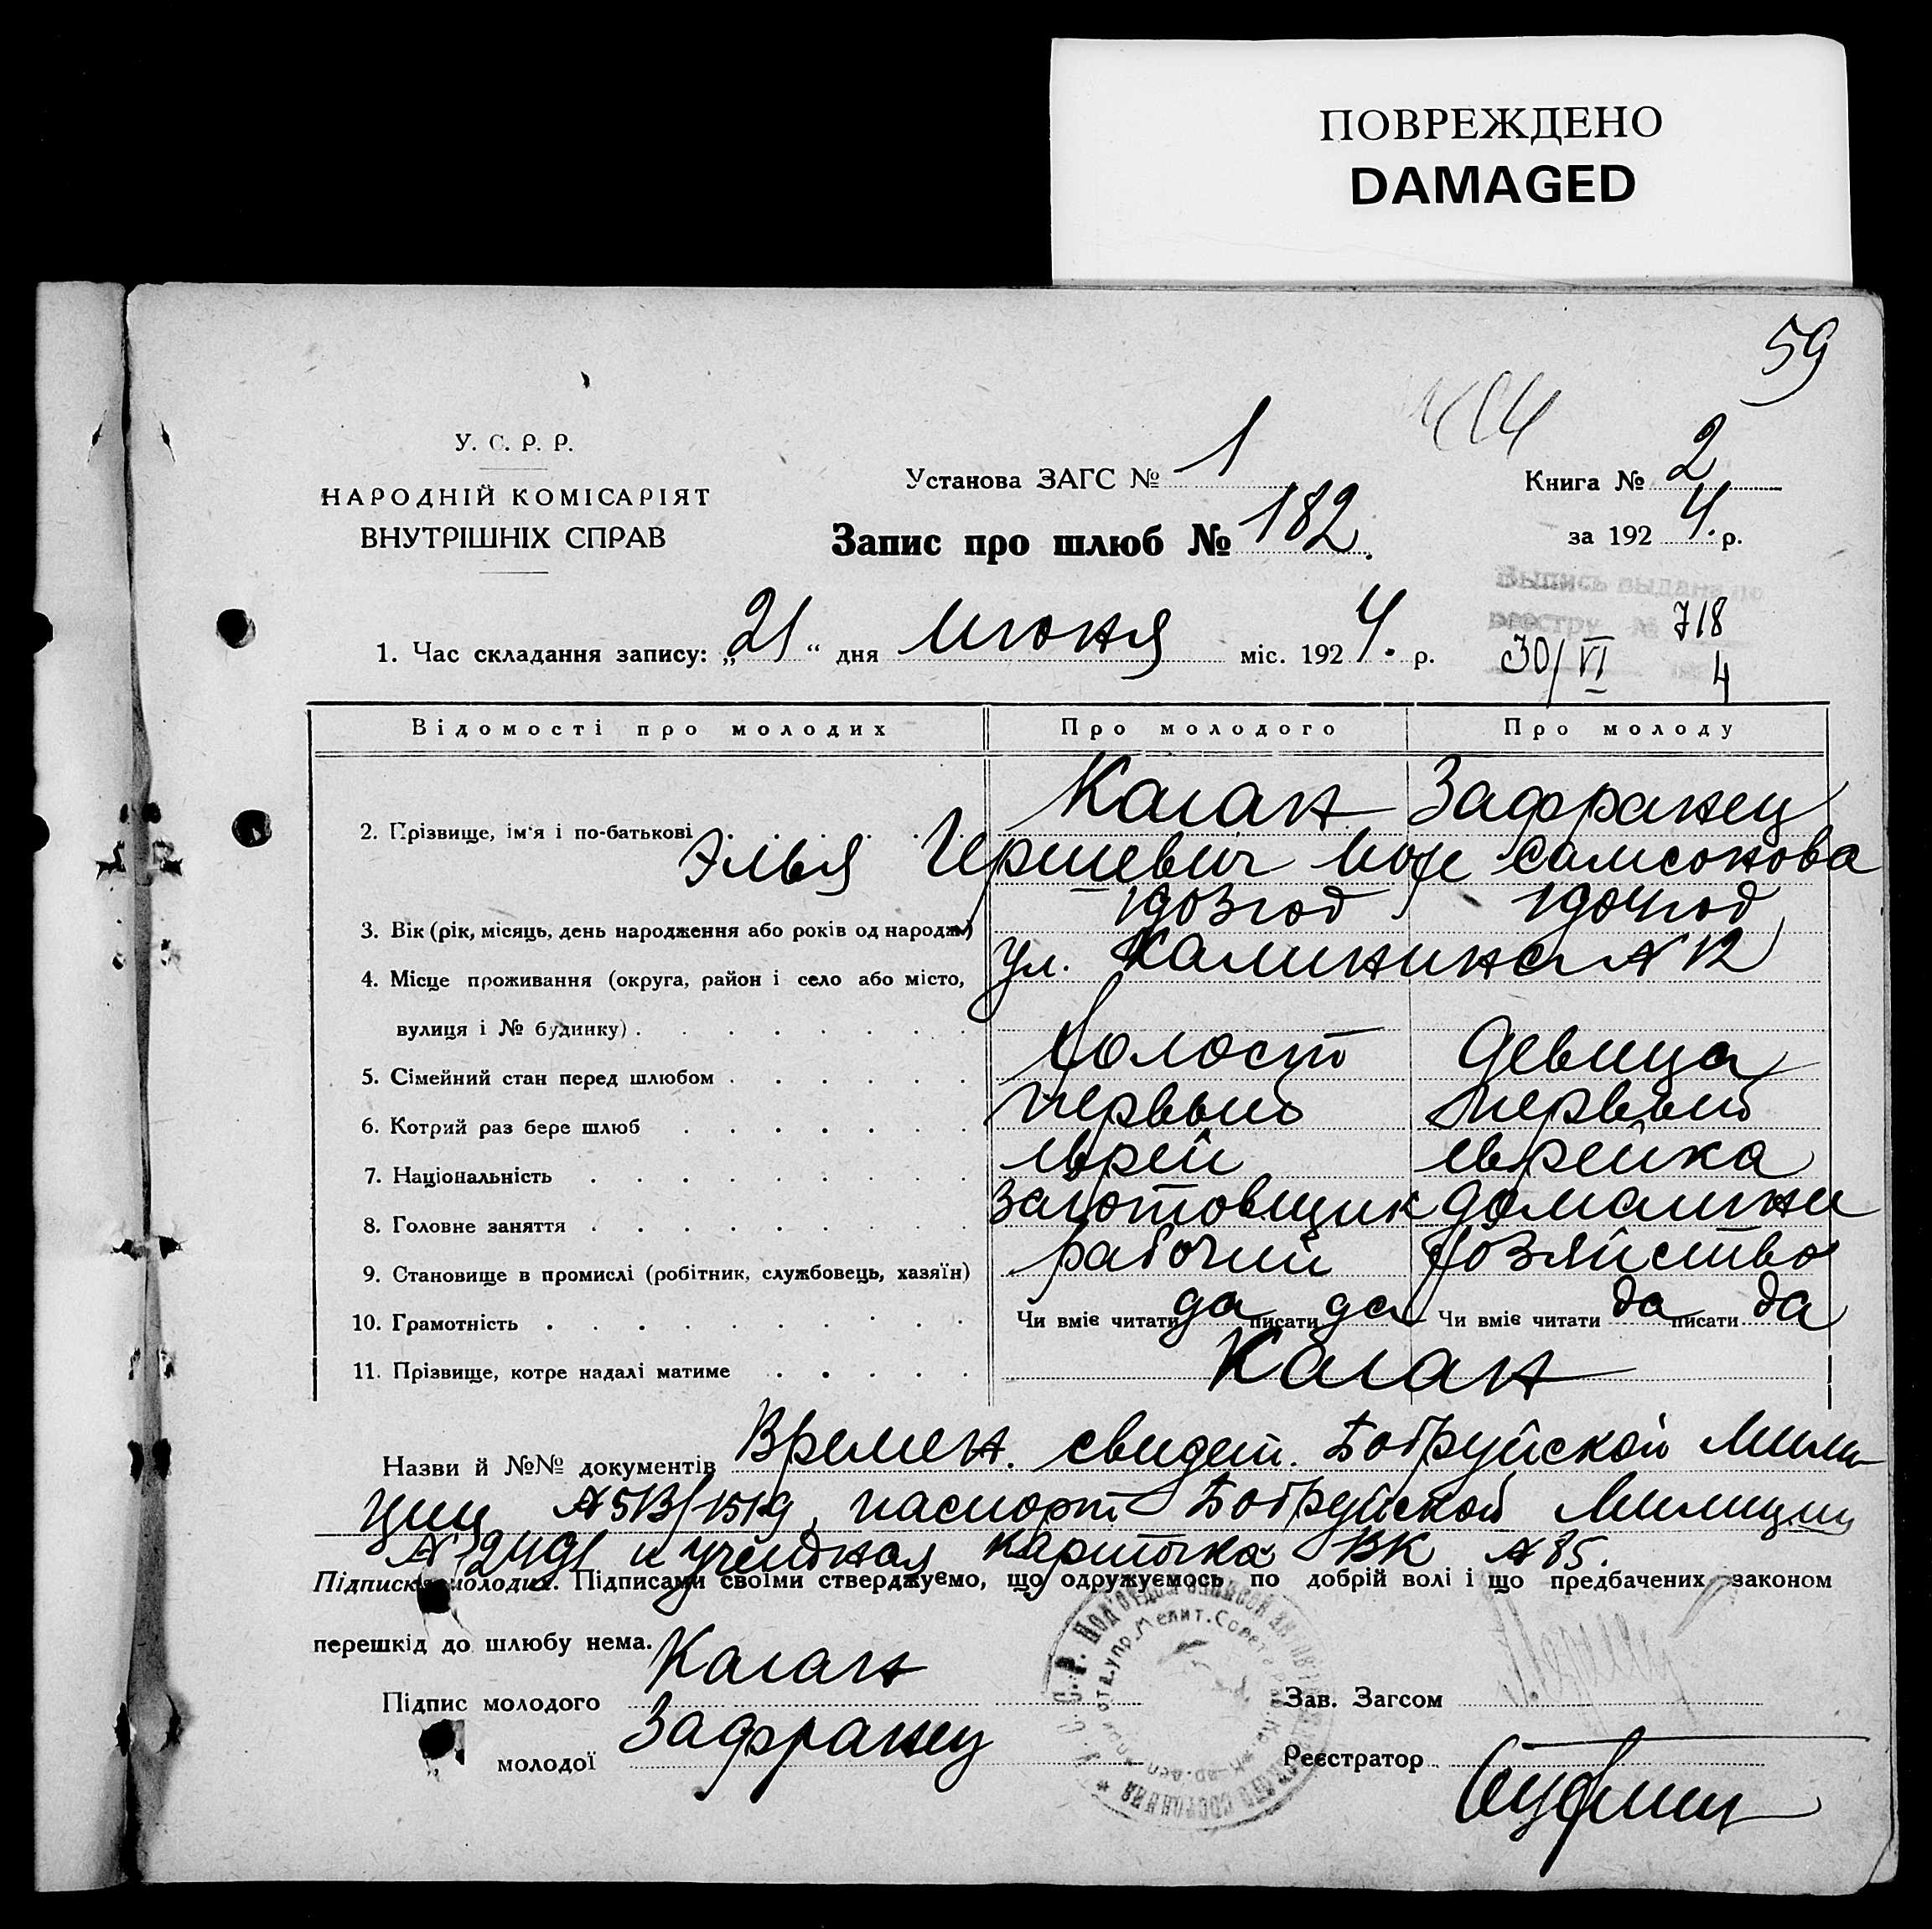 ПОВРЕЖДЕНО
DAMAGED
59
У. С. Р. Р.
НАРОДНІЙ КОМІСАРІЯТ
ВНУТРІШНІХ СПРАВ
Установа ЗАГС № 1
Запис про шлюб № 182.
Книга № 2
за 1924. р.
Выпись выдана по
реестру № 718
30/VI 4
1. Час складання запису: „21“ дня Июня міс. 1924. р.
Відомості про молодих Про молодого Про молоду
2. Прізвище, ім'я і по-батькові Каган Зафранец
Элья Гершевич Самсонова
3. Вік (рік, місяць, день народження або років од народж.) 1903 год 1904 год
4. Місце проживання (округа, район і село або місто, ул. Калинина № 12
вулиця і № будинку)
5. Сімейний стан перед шлюбом Холост Девица
6. Котрий раз бере шлюб первый первый
7. Національність еврей еврейка
8. Головне заняття Заготовщик домашни
9. Становище в промислі (робітник, службовець, хазяїн) рабочий хозяйство
10. Грамотність Чи вміє читати да писати да Чи вміє читати да писати да
11. Прізвище, котре надалі матиме Каган
Назви й №№ документів Времен. свидет. Бобруйской Мили
ции № 513/1519, паспорт Бобруйской Милиции
№ 2491 и учетная карточка ВК № 85.
Підписи молодих. Підписами своїми стверджуємо, що одружуємось по добрій волі і що предбачених законом
перешкід до шлюбу нема.
Підпис молодого Каган
Зав. Загсом
„ молодої Зафранец
Реєстратор